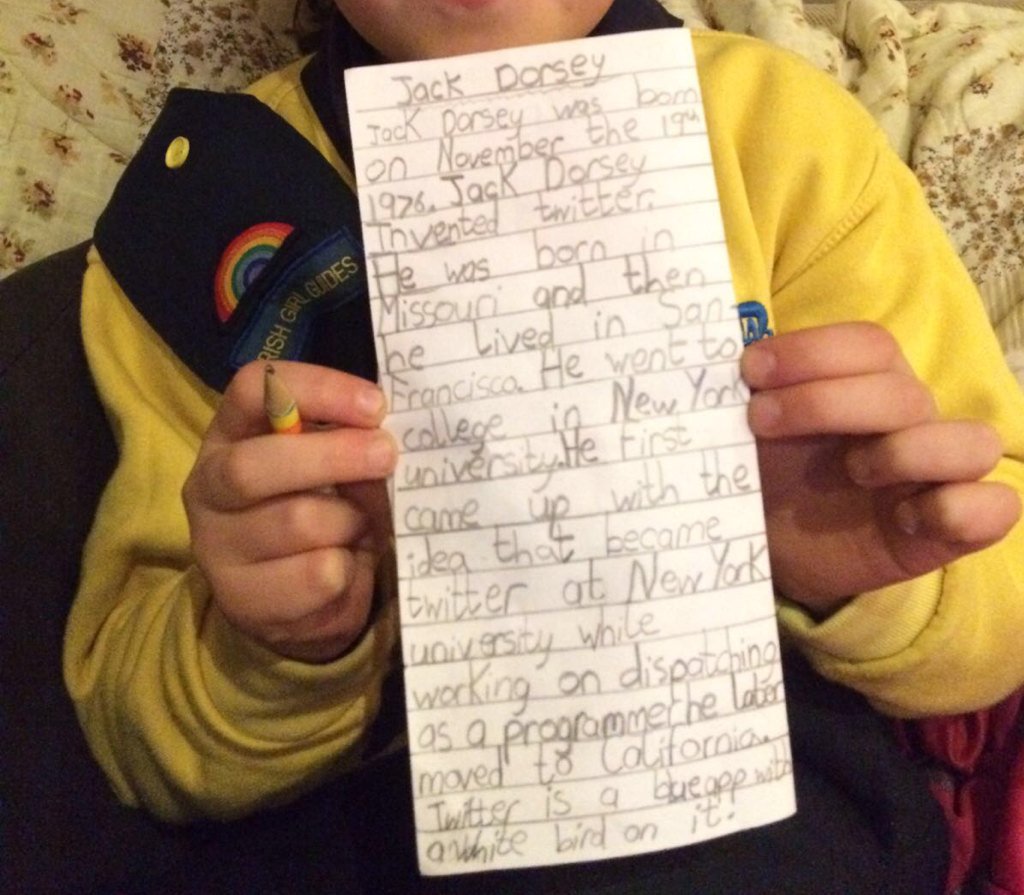 Jack Dorsey
Jack Dorsey was born
on November the 19th
1976. Jack Dorsey
Invented twitter.
He was born in
Missouri and then
he lived in San-
Francisco. He went to
college in New York
university. He first
came up with the
idea that became
twitter at New York
university while
working on dispatching
as a programmer he later
moved to California.
Twitter is a blue app with
a white bird on it!
RISH GIRL GUIDES